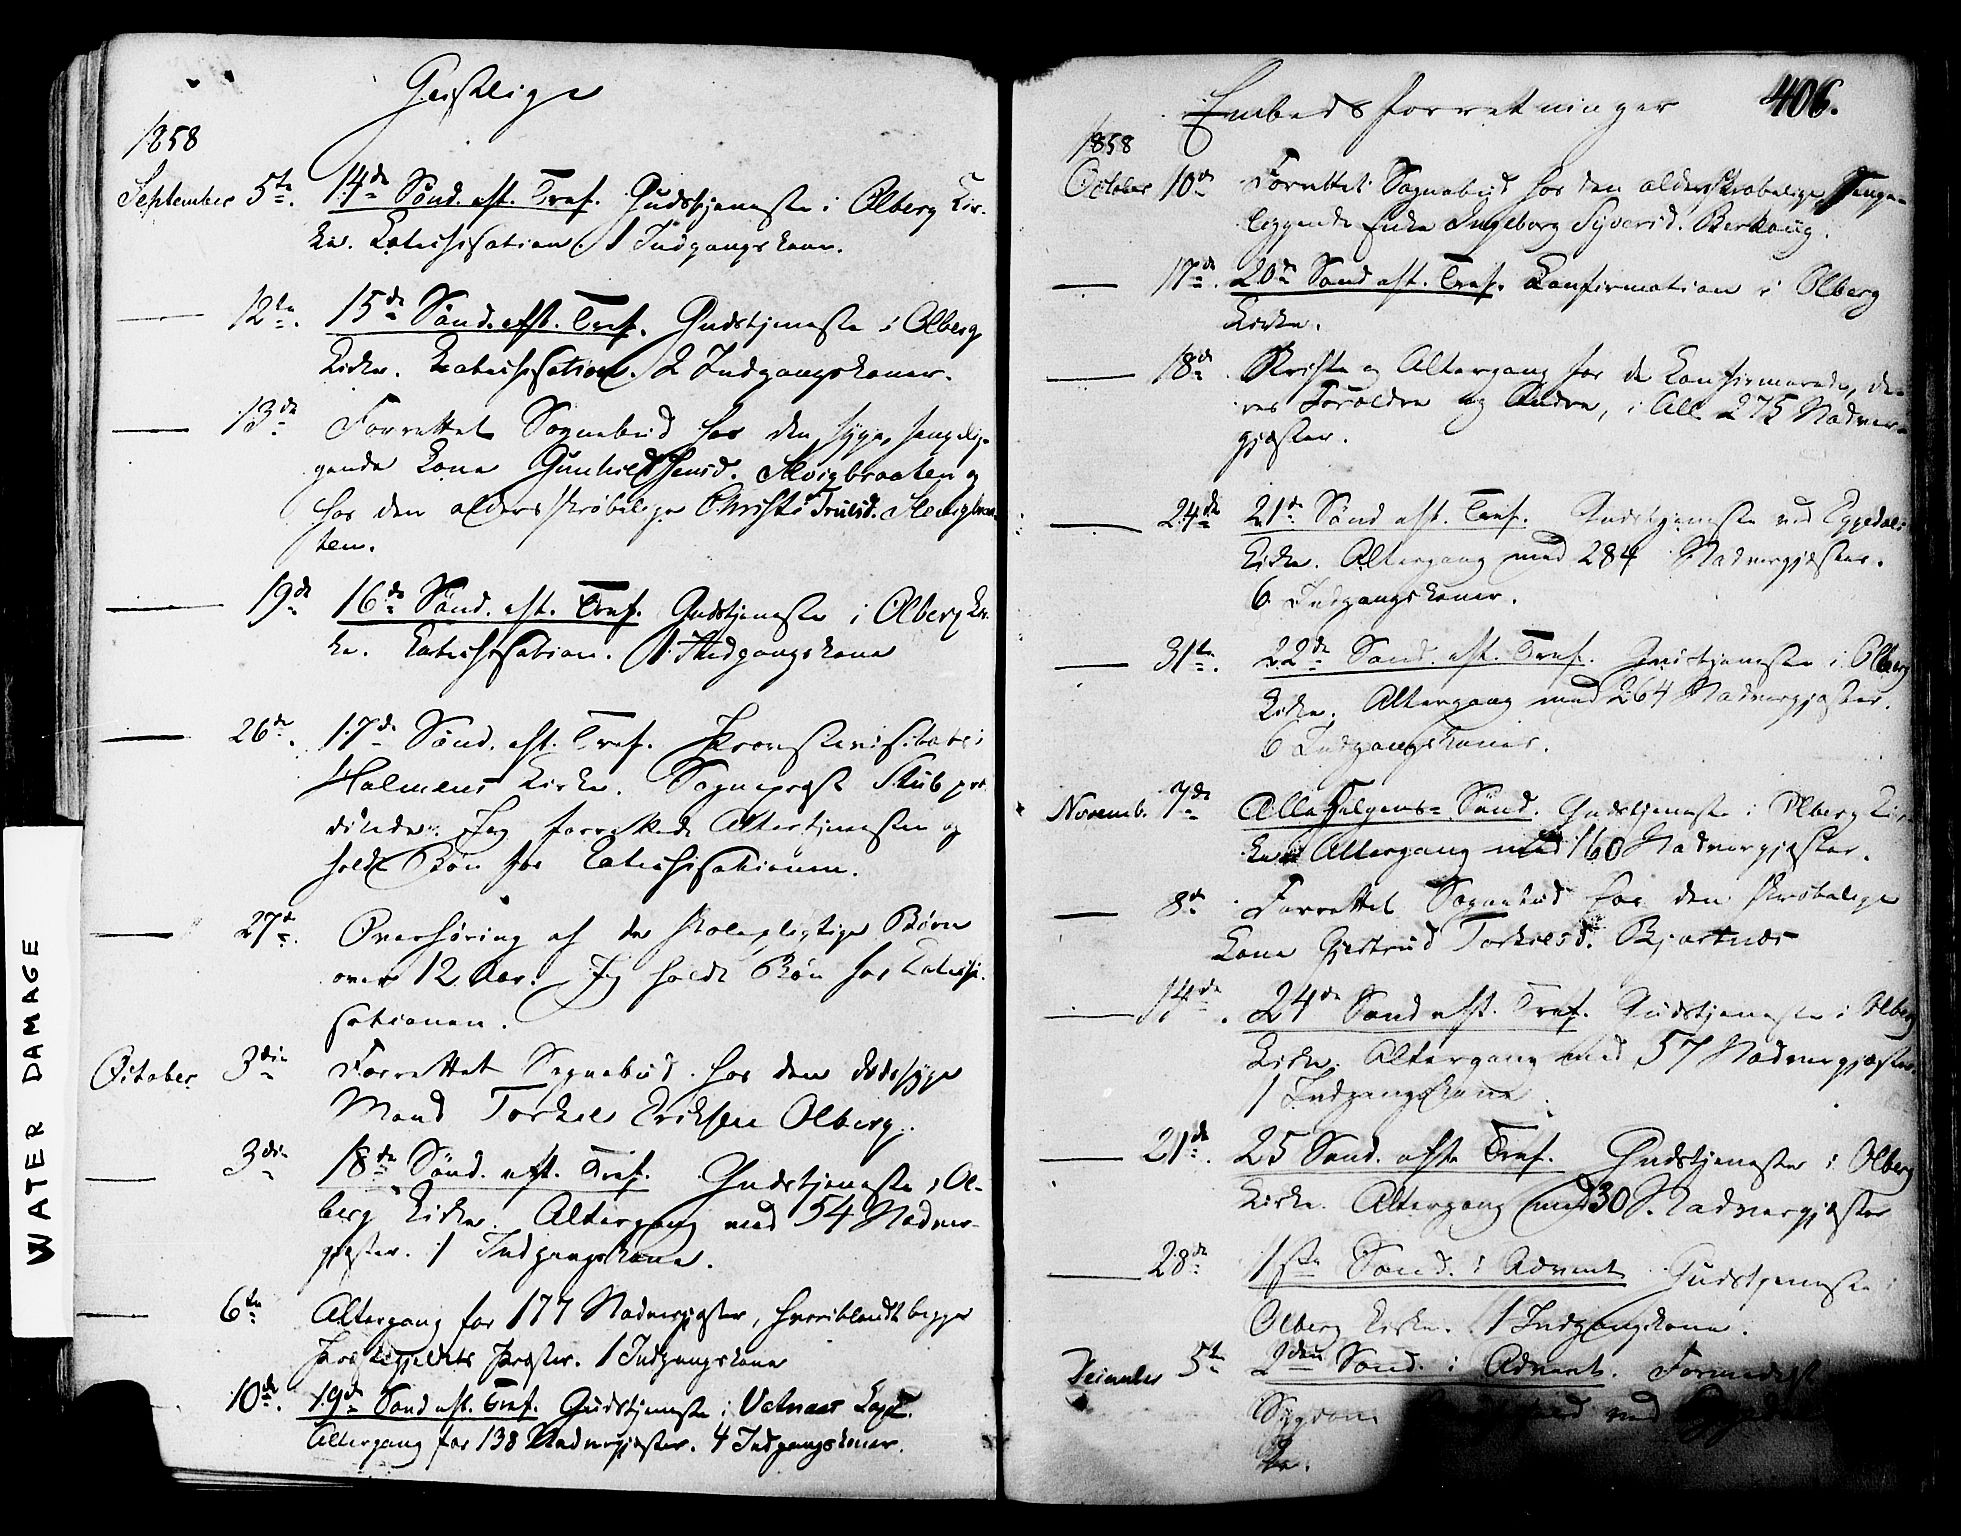 Geistlige
1858
September 5te. 14de Sönd. eft. Tref. Gudstjeneste i Olberg Kir-
ke. Katechisation. 1 Indgangskone.
— 12te. 15de Sönd. eft. Tref. Gudstjeneste i Olberg
Kirke. Katechisation. 2 Indgangskoner.
— 13de Forrettet Sognebud hos den syge, sengelig-
gende Kone Gunhild
hos den alderskröbelige Christi Trulsd.
ten.
— 19de 16de Sönd. eft. Tref. Gudstjeneste i Olberg Kir-
ke. Katechisation. 1 Indgangskone
— 26de. 17de Sönd. eft. Tref. Provstevisitats i
Holmens Kirke. Sognepræst Stub præ-
dikede. Jeg forrettede Altertjenesten og
holdt Bön for Katechisationen.
— 27de. Overhöring af de skolepligtige Börn
over 12 Aar. Jeg holdt Bön for Katechi-
sationen.
October 3die Forrettet Sognebud hos den dödssyge
Mand Torkel Eriksen Olberg.
— 3die 18de Sönd. eft. Tref. Gudstjeneste i Ol-
berg Kirke. Altergang med 54 Nadver-
gjæster. 1 Indgangskone.
— 6te Altergang for 177 Nadvergjæster, hvoriblandt begge
Præstegjeldets Præster. 1 Indgangskone
10de. 19de Sönd eft. Tref. Gudstjeneste i Vatnaas Kape.
Altergang for 138 Nadvergjæster. 4 Indgangskoner.
Embedsforretninger 406.
1858
October 10de Forrettet Sognebud hos den alderskröbelige, senge-
liggende Enke Ingeborg Syversd. Berhaug.
— 17de. 20de Sönd eft. Tref. Konfirmation i Olberg
Kirke.
— 18de Skrifte og Altergang for de Konfirmerede, de-
res Forældre og Andre, i Alt 275 Nadver-
gjæster.
— 24de 21de Sönd eft. Tref. Gudstjeneste ved Eggedals
Kirke. Altergang med 284 Nadvergjæster.
6 Indgangskoner.
— 31te. 22de Sönd. eft. Tref. Gudstjeneste i Olberg
Kirke. Altergang med 264 Nadvergjæster.
6 Indgangskoner.
Novemb. 7de Alle Helgens-Sönd. Gudstjeneste i Olberg Kir
ke. Altergang med 160 Nadvergjæster.
— 8de Forrettet Sognebud hos den skröbelige
Kone Gjertrud Torkelsd. Bjertnæs
— 14de. 24de Sönd eft. Tref. Gudstjeneste i Olberg
Kirke. Altergang med 57 Nadvergjæster.
1 Indgangskone.
— 21de. 25 Sönd. efte Tref. Gudstjeneste i Olberg
Kirke. Altergang med 30 Nadvergjæster
— 28de 1ste Sönd. i Advent Gudstjeneste i
Olberg Kirke. 1 Indgangskone.
Deimber 5te 2den Sönd. i Advent. Formedelst
Sygdom ved
ke.
WATER DAMAGE